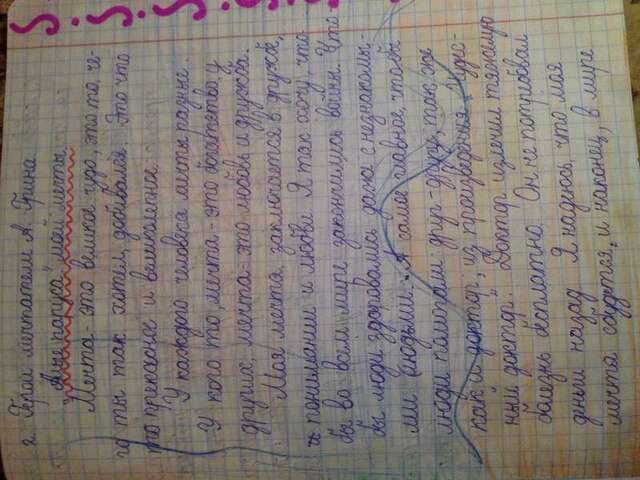 2. Герои мечтатели А. Грина
"Алые паруса" мои мечты.
Мечта - это великое чудо, это то, че-
го ты так хотел, добивался. Это что
то прикасное и волшебное.
У каждого человека мечты разные.
У кого то мечта - это богатство у
других мечта - это любовь и дружба.
Моя мечта, заключается в дружбе,
и понимании и любви. Я так хочу, что
бы во всём мире закончились войны. Что
бы люди здоровались даже с незнакомы-
ми людьми. А самое главное, чтобы
люди помогали друг-другу, так же
как и доктор, из произведения "Чудес-
ный доктор". Доктор излечил тяжелую
болезнь бесплатно. Он не потребовал
деньги назад. Я надеюсь, что моя
мечта сбудется, и наконец, в мире